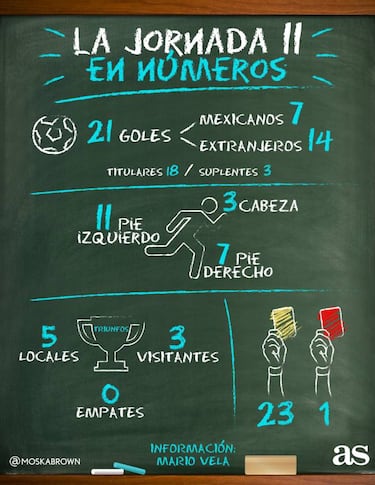 LA JORNADA 11
EN NÚMEROS
21 GOLES
MEXICANOS 7
EXTRANJEROS 14
TITULARES 18 / SUPLENTES 3
3 CABEZA
11 PIE
IZQUIERDO
7 PIE
DERECHO
TRIUNFOS
5
LOCALES
3
VISITANTES
0
EMPATES
23
1
INFORMACIÓN:
MARIO VELA
@MOSKABROWN
as